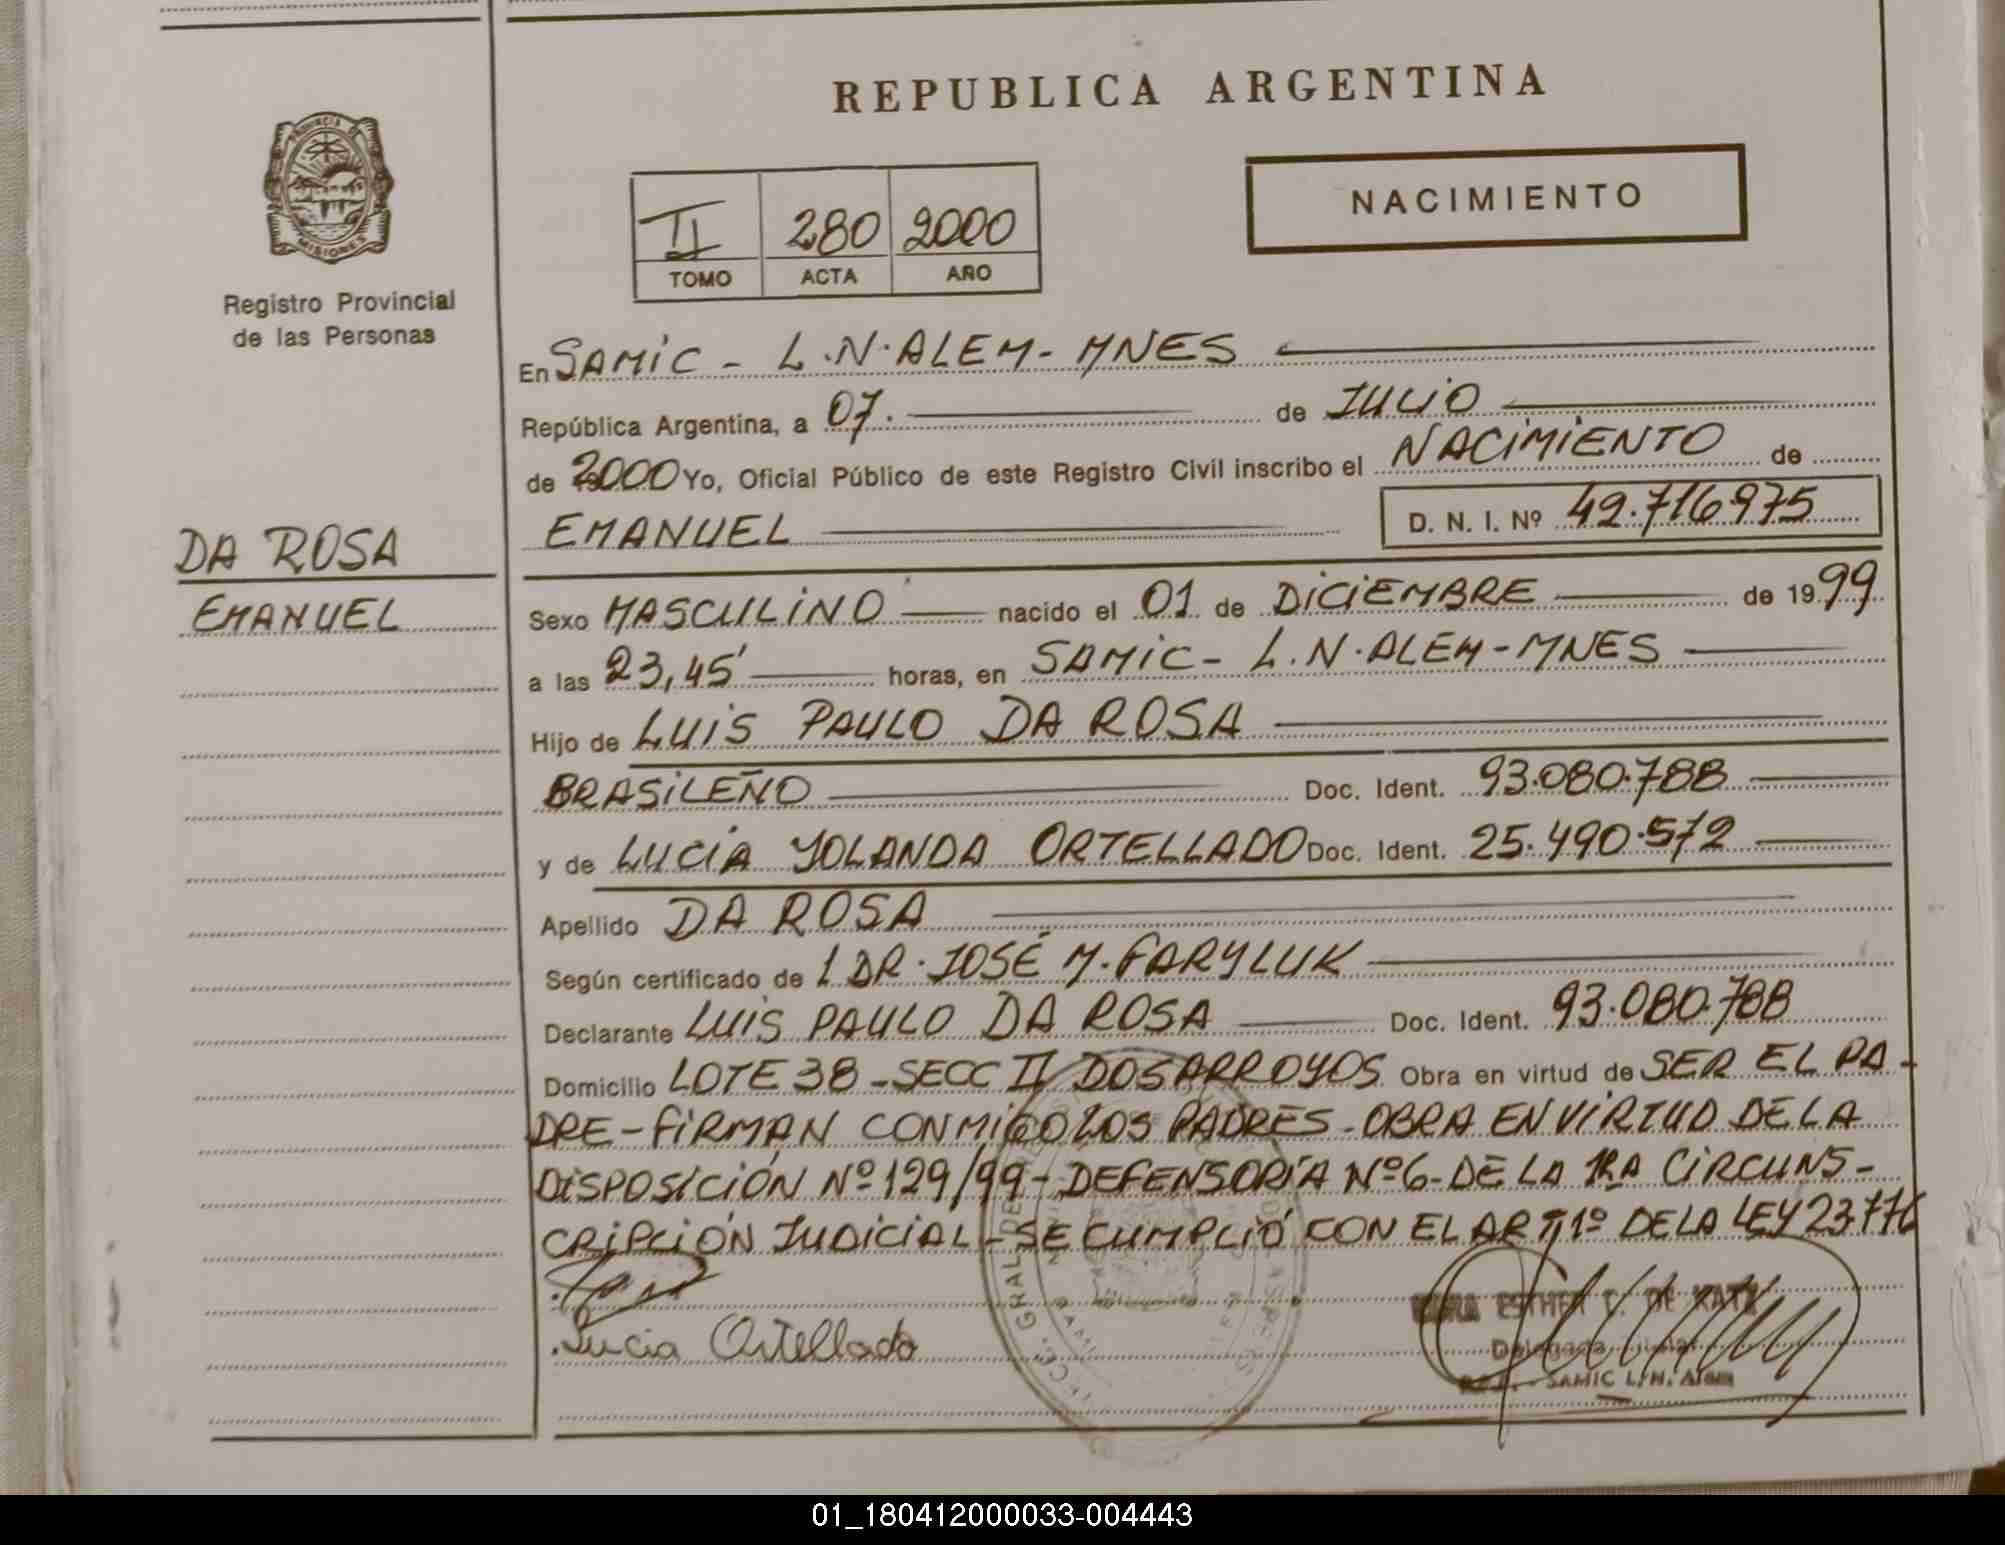 REPUBLICA ARGENTINA
PROVINCIA DE
MISIONES
Registro Provincial
de las Personas
NACIMIENTO
II 280 2000
TOMO ACTA AÑO
En SAMIC - L.N. ALEM - MNES
República Argentina, a 07. de JULIO
de 2000 Yo, Oficial Público de este Registro Civil inscribo el NACIMIENTO de
EMANUEL D. N. I. Nº 42.716975
DA ROSA
EMANUEL
Sexo MASCULINO nacido el 01 de DICIEMBRE de 1999
a las 23,45' horas, en SAMIC - L.N. ALEM - MNES
Hijo de LUIS PAULO DA ROSA
BRASILEÑO Doc. Ident. 93.080.788
y de LUCIA YOLANDA ORTELLADO Doc. Ident. 25.490.572
Apellido DA ROSA
Según certificado de DR. JOSÉ M. FARYLUK
Declarante LUIS PAULO DA ROSA Doc. Ident. 93.080.788
Domicilio LOTE 38 - SECC II DOS ARROYOS Obra en virtud de SER EL PA-
DRE - FIRMAN CONMIGO LOS PADRES - OBRA EN VIRTUD DE LA
DISPOSICIÓN Nº 129/99 - DEFENSORÍA Nº 6 - DE LA 1RA CIRCUNS-
CRIPCIÓN JUDICIAL - SE CUMPLIÓ CON EL ART 1º DE LA LEY 23.776
Lucia Ortellado
ESTHER C. DE KATZ
SAMIC L.N. Alem
01_180412000033-004443